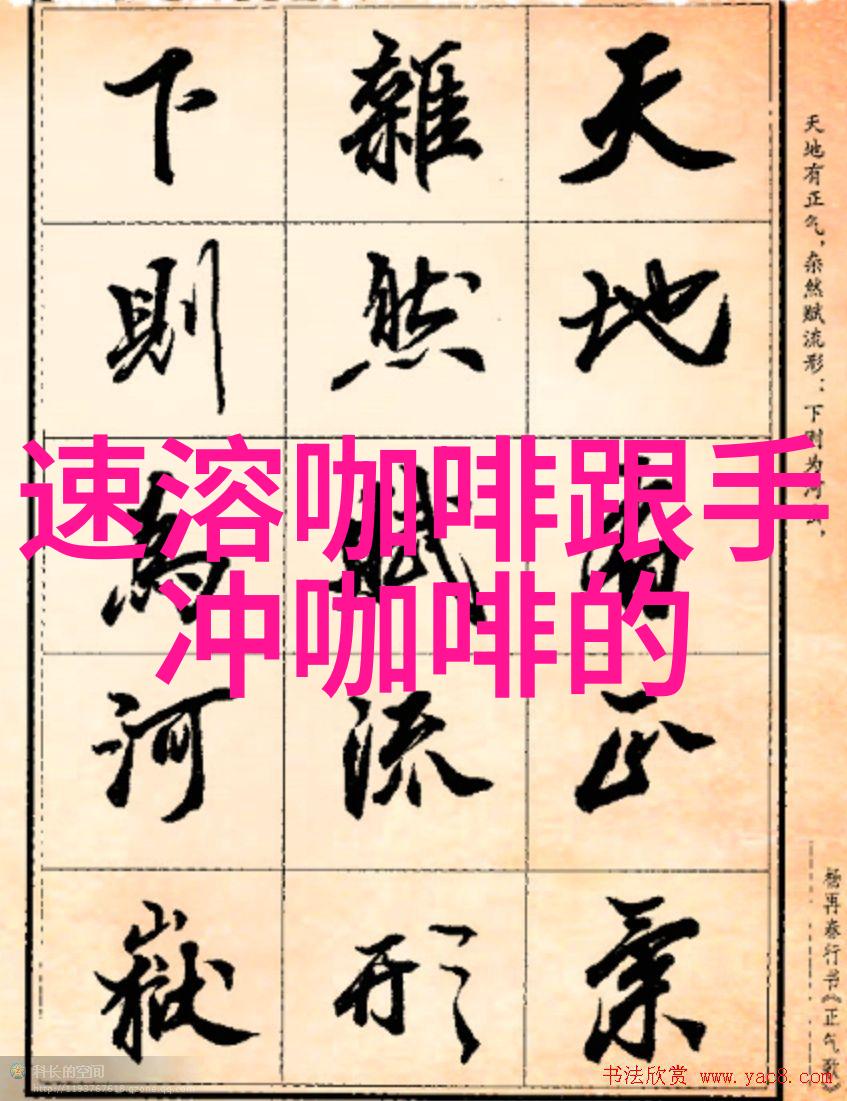 天地有正氣
雜然賦流形
下則為河嶽
天地有正气，杂然赋流形：下则为河岳，
杨再春行书《正气歌》
速溶咖啡跟手
冲咖啡的
科长的空间
http://1193767618.qzone.qq.com
书法欣赏 www.yac8.com